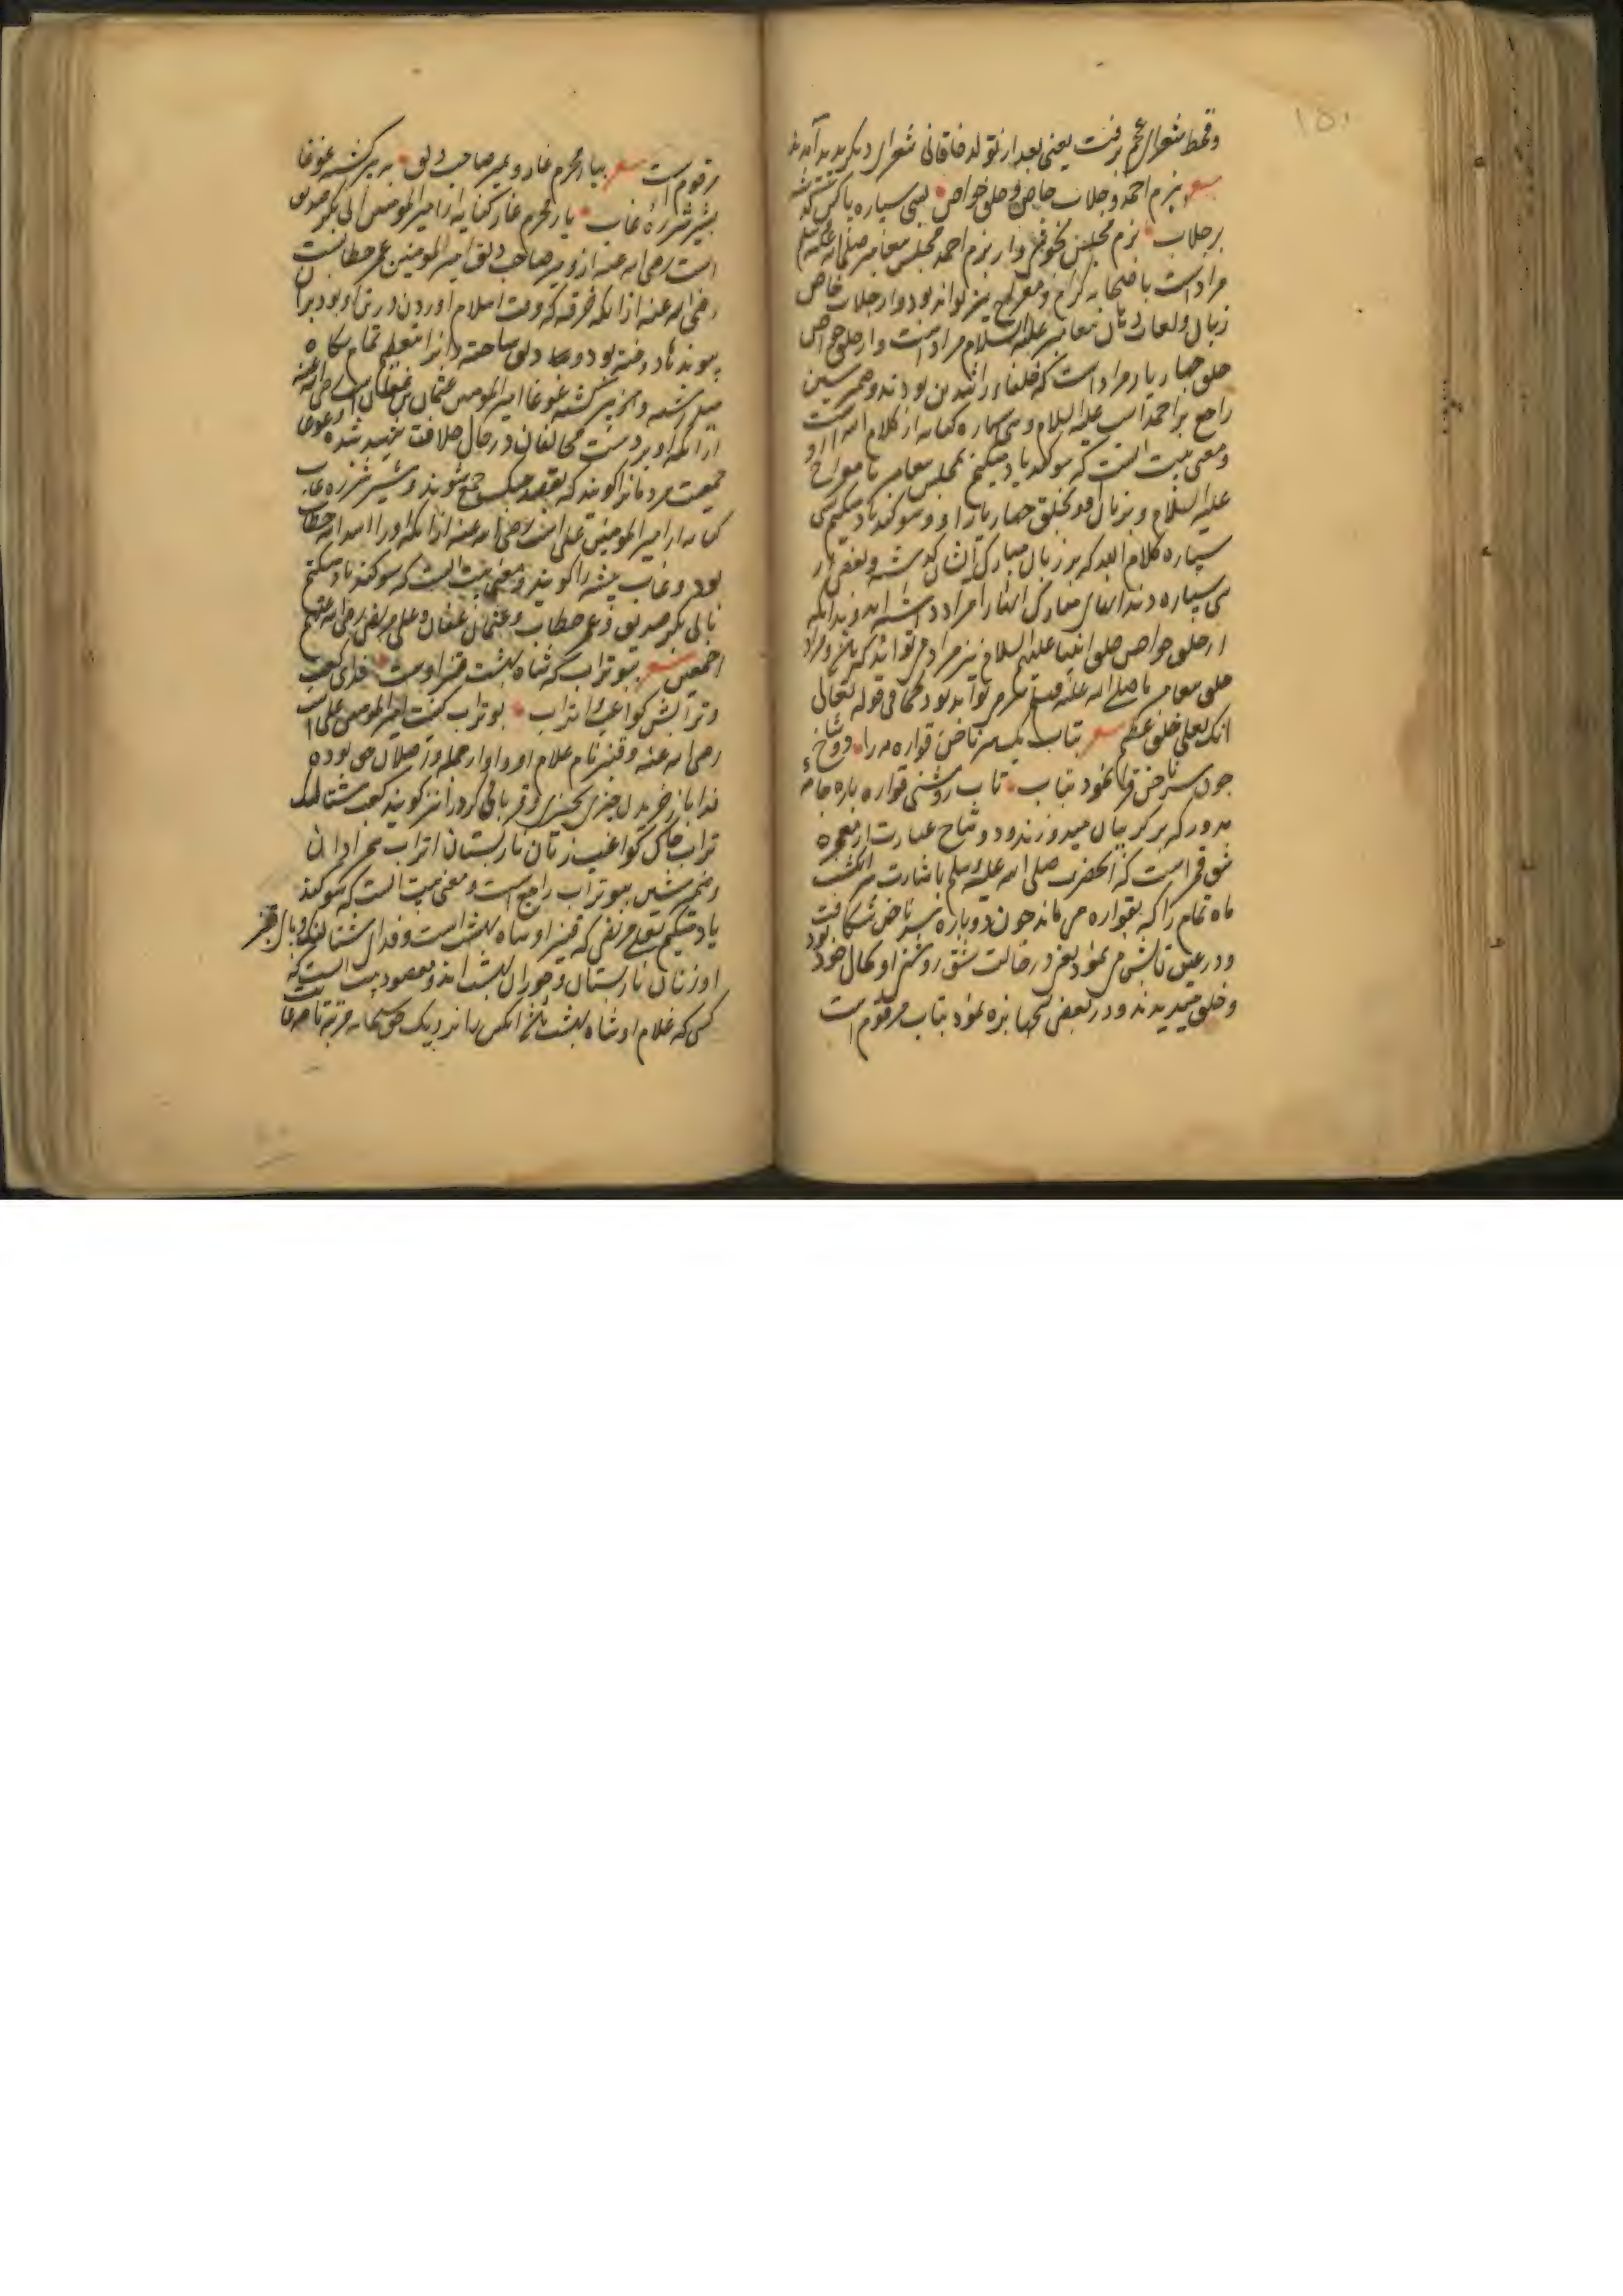 ۱۵۱
وقحط شعرای عجم برفت یعنی بعد از تولد خاقانی شعرای دیگر پدید آمدند
شعر ببزم احمد و جلاب خاص و حلق خواص بسی سپاره پاکش که
بر جلاب بزم مجلس و از بزم احمد مجلس پیغامبر صلی الله علیه وسلم
مراد است با صحابه کرام و معراج نیز تواند بود و از جلاب خاص
زبان و لعاب دهان پیغامبر علیه السلام مراد است و از حلق خواص
حلق چهار یار مراد است که خلفای راشدین بودند و ضمیر شین
راجع بر احمد است علیه السلام و سی سپاره کنایه از کلام الله است
و معنی بیت آنست که سوگند یاد میکنم بمجلس پیغامبر یا معراج او
علیه السلام و بزبان او و بحلق چهار یار او و سوگند یاد میکنم بسی
سپاره کلام الله که بر زبان مبارک ایشان گذشته و بعضی از
سی سپاره دندانهای مبارک آنها را مراد داشته اند و بدانکه
از حلق خواص حلق انبیا علیهم السلام نیز مراد می تواند که باشد و مراد
خلق پیغامبر ما صلی الله علیه وسلم هم می تواند بود کما فی قوله تعالی
انک لعلی خلق عظیم شعر بتاب یک سر ناخن قواره مه را دو شاخ
چون سر ناخن نمود بتاب تاب روشنی قواره پاره جامه
مدور که بر گریبان میدوزند و دو شاخ عبارت از معجزه
شق قمر است که آنحضرت صلی الله علیه وسلم باشارت سر انگشت
ماه تمام را که بقواره می ماند چون دو پاره سر ناخن شکافت
و در عین تابش می نمود یعنی در حالت شق روشنی او بحال خود بود
و خلق میدیدند و در بعضی نسخها بزه نمود بتاب مرقوم است
مرقوم است شعر بیار محرم غار و بمیر صاحب دلق به پیر کشته غوغا
بشیر شرزه غاب یار محرم غار کنایه از امیر المومنین ابی بکر صدیق
است رضی الله عنه و از میر صاحب دلق امیر المومنین عمر خطابست
رضی الله عنه از آنکه خرقه که وقت اسلام آوردن در بر او بود بران
پیوندها دوخته بود و دلق ساخته و آنرا تمام
و از پیر کشته غوغا امیر المومنین عثمان بن عفان است رضی الله عنه
از آنکه او بر دست مخالفان در حال خلافت شهید شده و غوغا
جمعیت مردمانرا گویند که بقصد جنگ جمع شوند و شیر شرزه غاب
کنایه از امیر المومنین علی است رضی الله عنه از آنکه او را اسد الله خطاب
بود و غاب بیشه را گویند و معنی بیت آنست که سوگند یاد میکنم
بابی بکر صدیق و عمر خطاب و عثمان عفان و علی مرتضی رضی الله عنهم
اجمعین شعر ببوتراب که شاه بهشت قنبر اوست فدای کعب
و ترابش کواعب اتراب بوتراب کنیت امیر المومنین علی است
رضی الله عنه و قنبر نام غلام او و او از جمله می بوده
فدا باز خریدن چیزی بچیزی و قربانی کردن نیز گویند کعب شتالنگ
تراب خاک کواعب زنان نارپستان اتراب همزادان
و ضمیر شین ببوتراب راجع است و معنی بیت آنست که سوگند
یاد میکنم بعلی مرتضی که قنبر او شاه بهشت است و فدای شتالنگ و خاک قنبر
او زنان نارپستان و حوران بهشت اند و مقصود بیت آنست که
کسی که غلام او شاه بهشت باشد آنکس را نزدیک حق سبحانه مرتبه تا چه غایت